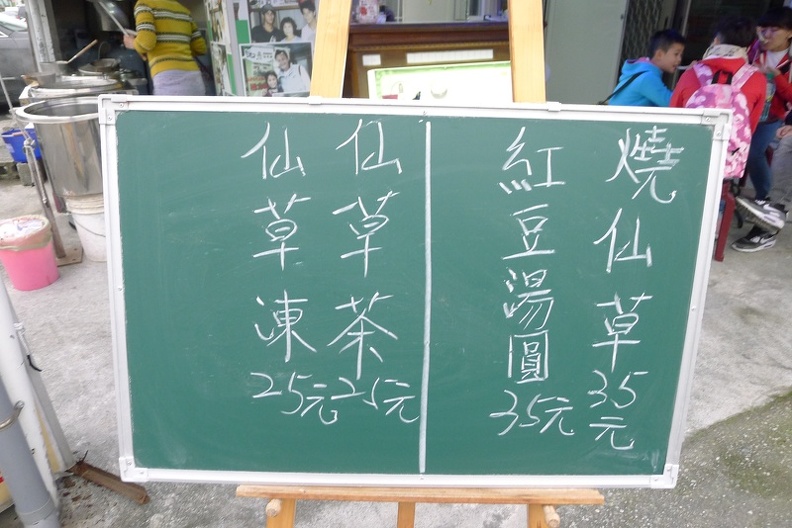 燒仙草35元
紅豆湯圓35元
仙草茶25元
仙草凍25元